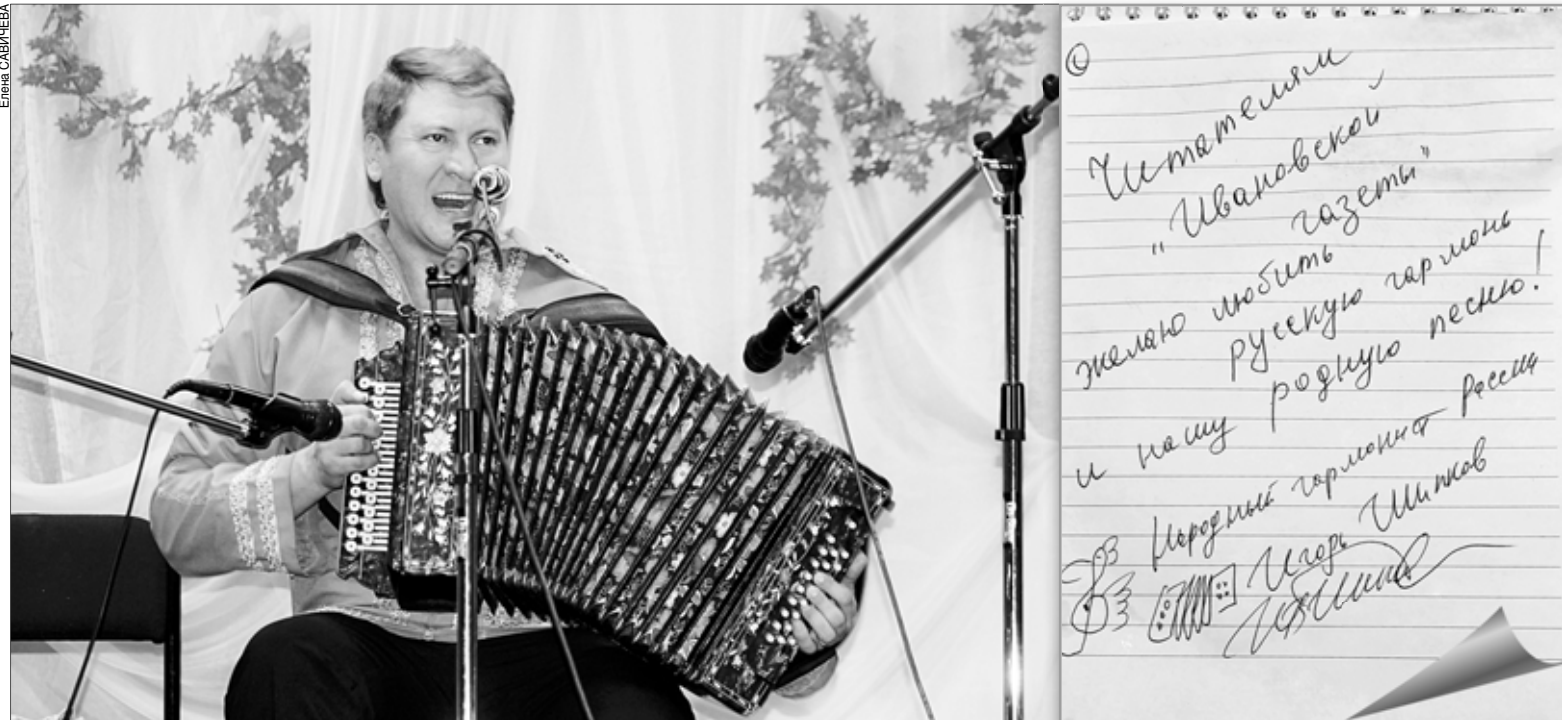 Елена САВИЧЕВА
Читателям
"Ивановской
газеты"
желаю любить
русскую гармонь
и нашу родную песню!
Народный гармонист России
Игорь Шипков